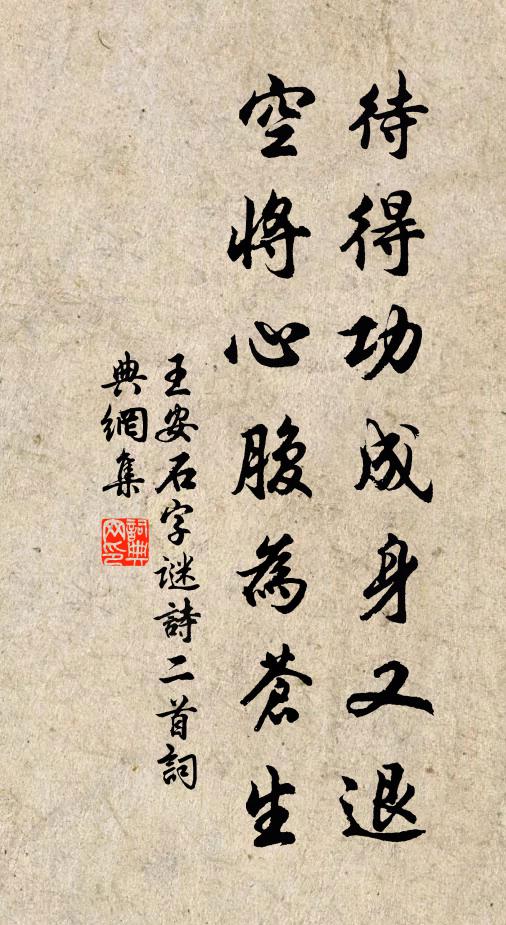 待得功成身又退
空將心腹為蒼生
王安石字謎詩二首詞
典網集
詞典
网印